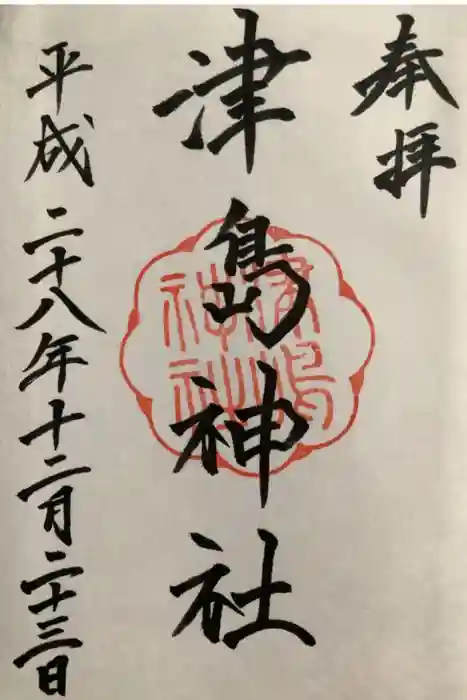 奉拝
津島神社
津嶋
神社
平成二十八年十二月二十三日